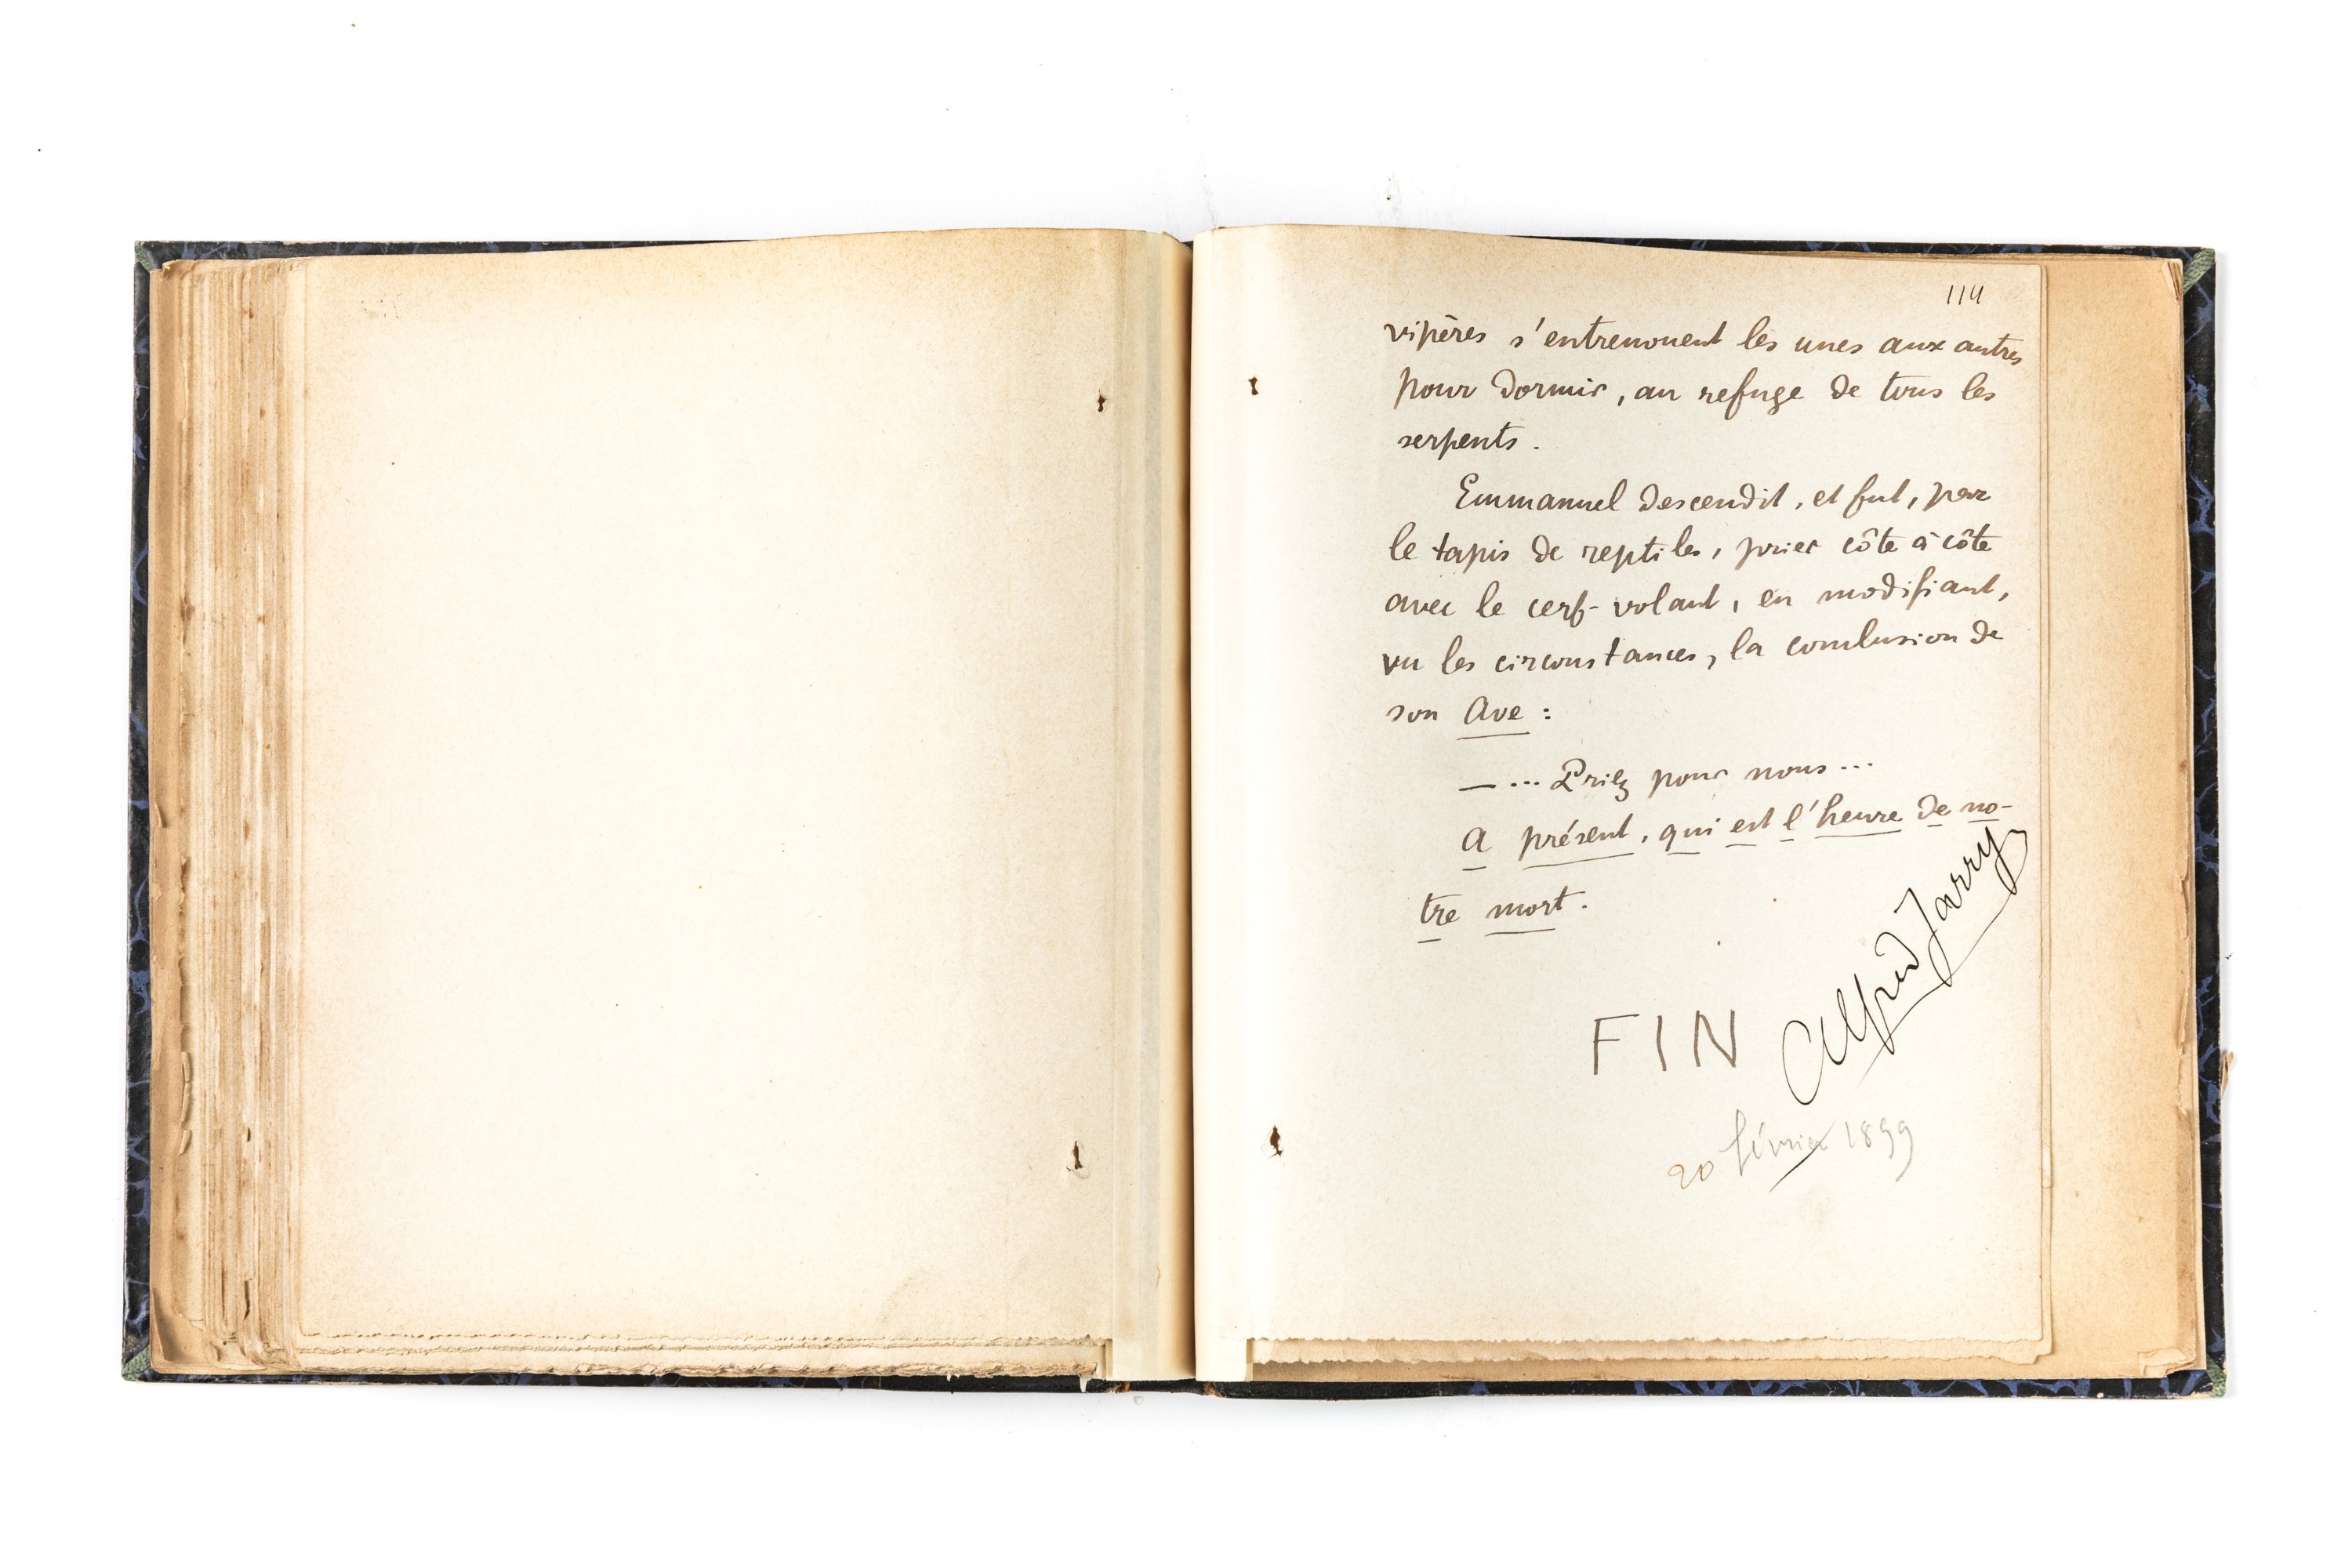 114
vipères s'entrenouent les unes aux autres
pour dormir, au refuge de tous les
serpents.
Emmanuel descendit, et fut, par
le tapis de reptiles, prier côte à côte
avec le cerf-volant, en modifiant,
vu les circonstances, la conclusion de
son Ave :
— ... Priez pour nous ...
A présent, qui est l'heure de no-
tre mort.
Alfred Jarry
FIN
20 février 1899